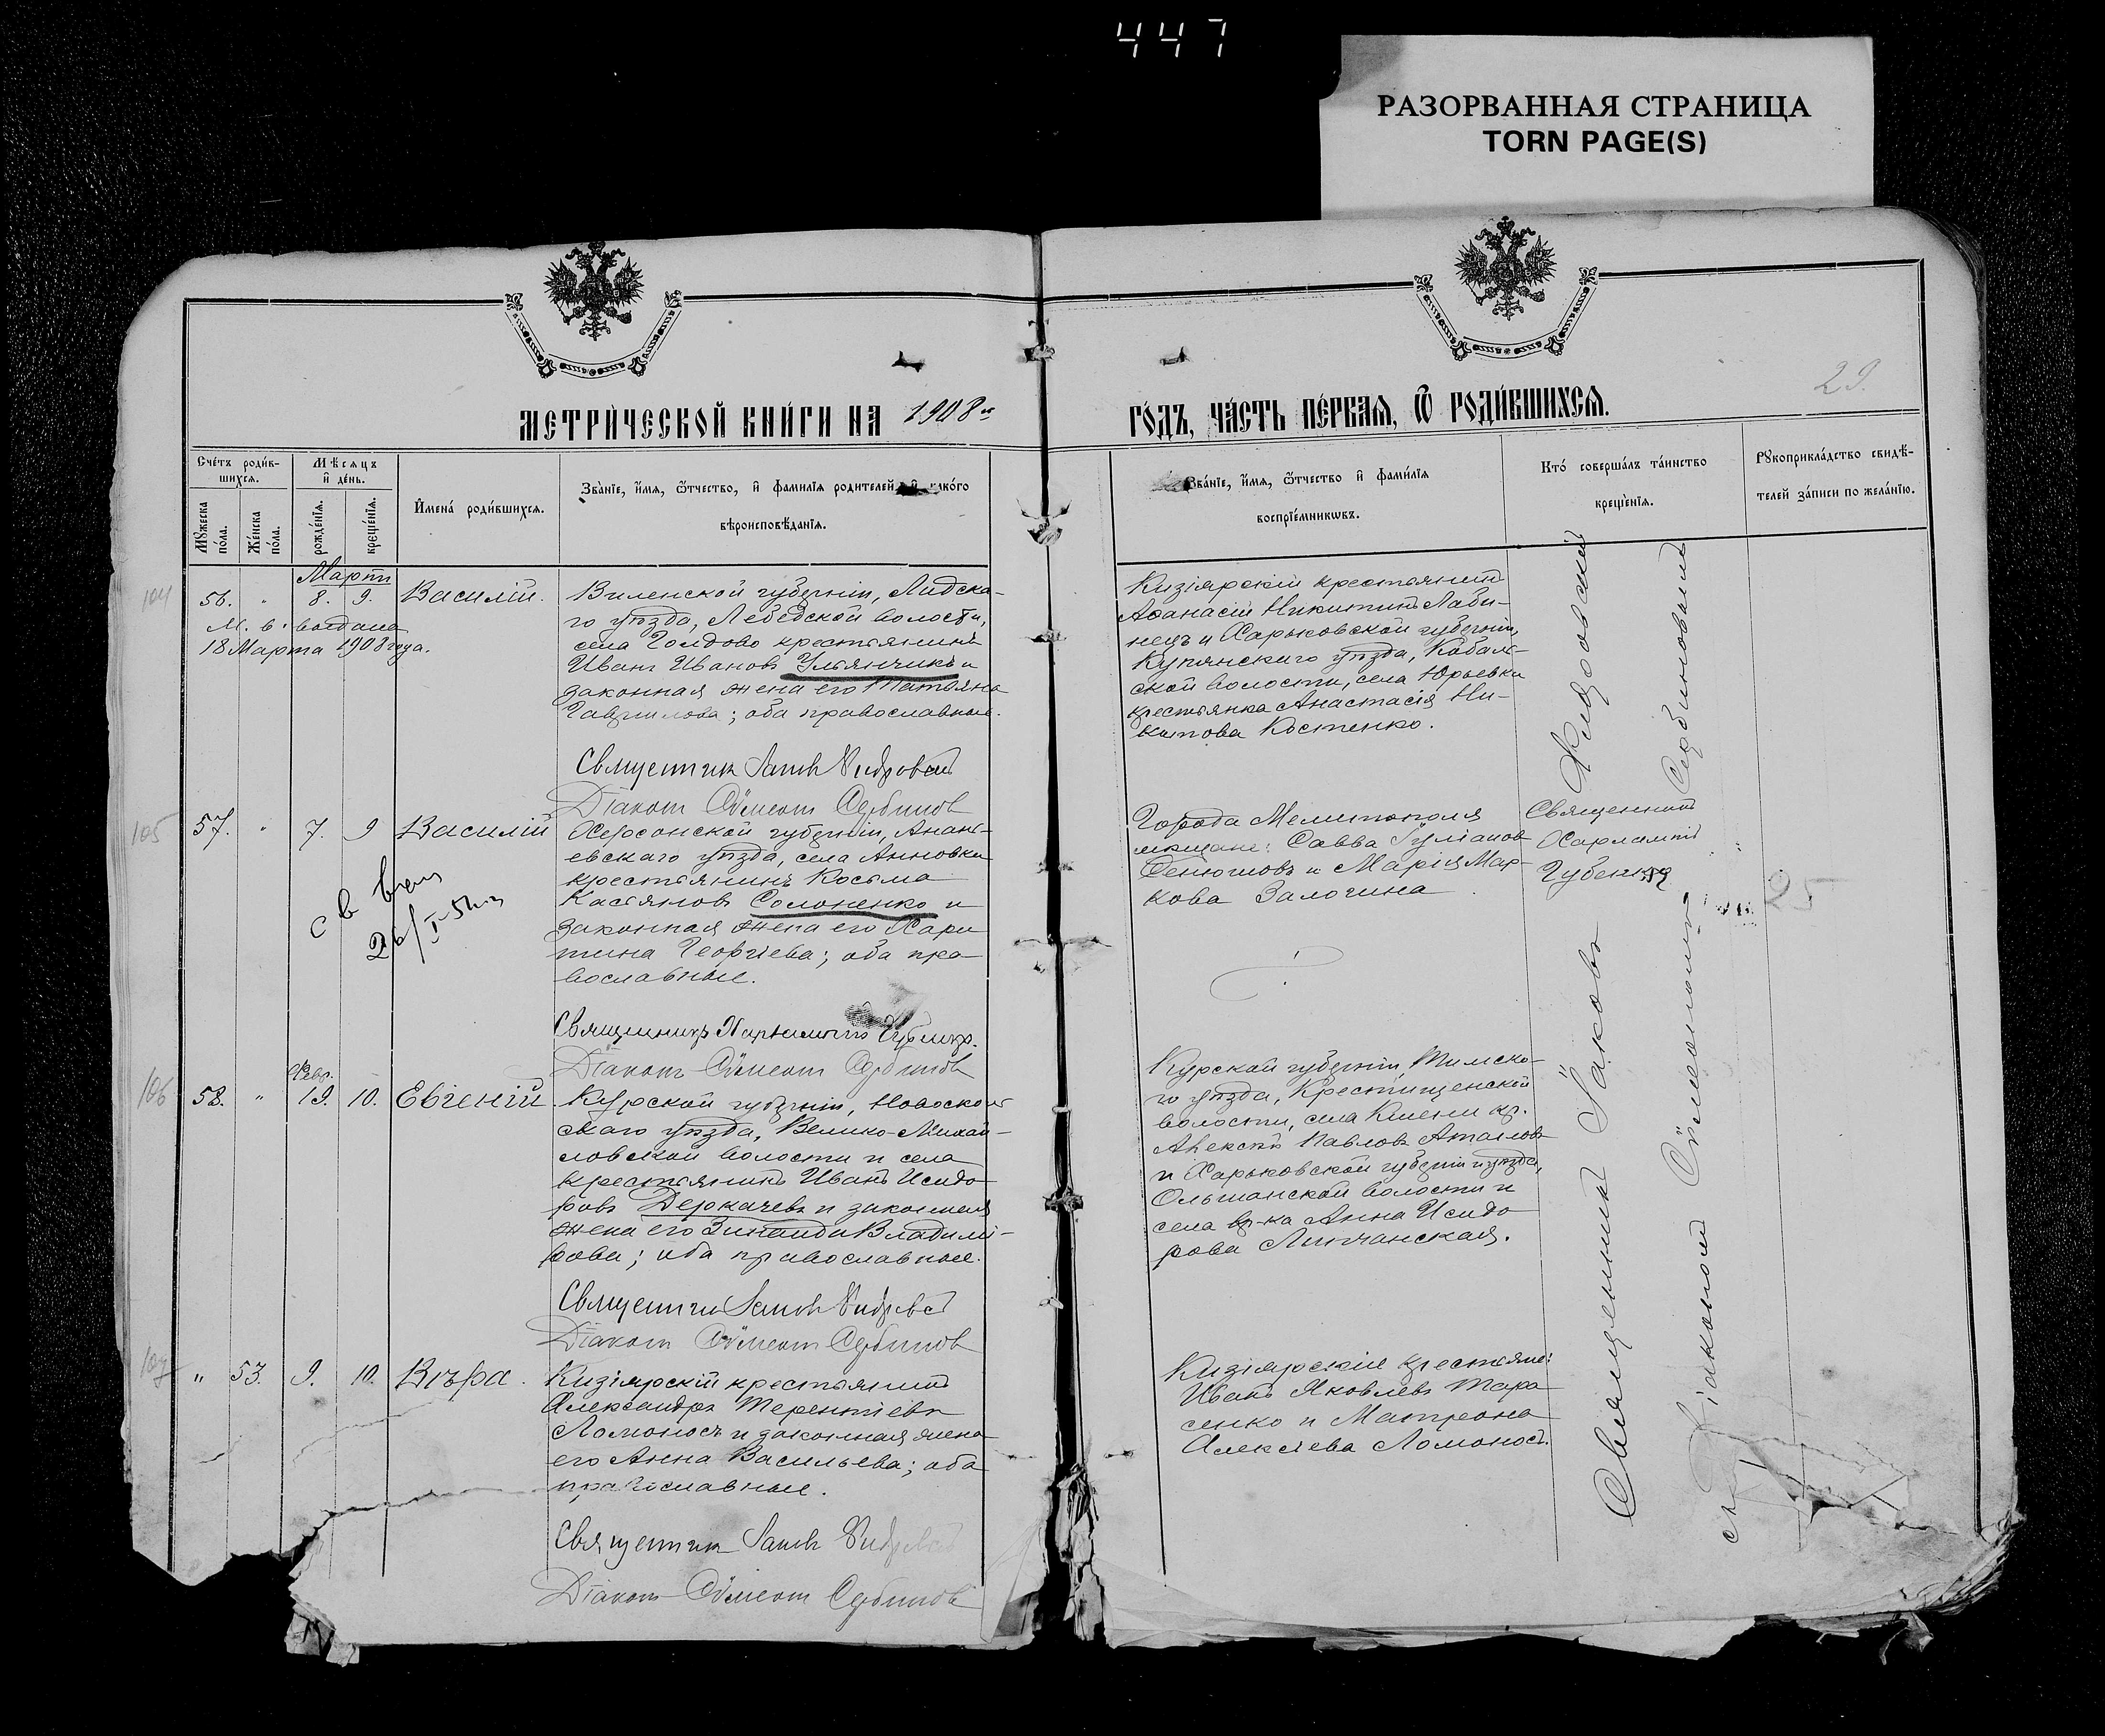 447
РАЗОРВАННАЯ СТРАНИЦА
TORN PAGE(S)
29.
МЕТРИ́ЧЕСКОЙ КНИ́ГИ НА 1908й
ГО́ДЪ, ЧА́СТЬ ПЕ́РВАЯ, Ѿ РОДИ́ВШИХСЯ.
Сче́тъ роди́в-
шихся.
Мѣсяцъ
и҆ де́нь.
Мꙋжеска по́ла.
Же́нска по́ла.
рожде́нїя.
креще́нїя.
И҆мена̀ роди́вшихся.
Зва́нїе, и҆́мя, ѻ҆́тчество, и҆ фами́лїя родителей, и҆ како́го
вѣроисповѣ́данїя.
Зва́нїе, и҆́мя, ѻ҆́тчество и҆ фами́лїя
воспрїе́мникѡвъ.
Кто̀ соверша́лъ та́инство
креще́нїя.
Рꙋкоприкла́дство свидѣ́-
телей за́писи по жела́нїю.
104
Мартъ
56. " 8. 9. Василій.
М. в. выдана
18 Марта 1908 года.
Виленской губерніи, Лидска-
го уѣзда, Лебедской волости,
села Голдово крестьянинъ
Иванъ Ивановъ Ульянчикъ и
законная жена его Татьяна
Гавриилова; оба православные.
Священникъ Іаковъ
Діаконъ Сѵмеонъ Сербиновъ
Кизіярскій крестьянинъ
Аѳанасій Никитинъ Лаби-
нецъ и Харьковской губерніи,
Купянскаго уѣзда, Кабан-
ской волости, села Юрьевки
крестьянка Анастасія Ни-
китова Костенко.
105
57. " 7. 9 Василій
Херсонской губерніи, Анань-
евскаго уѣзда, села Анновки
крестьянинъ Косьма
Касьяновъ Солоненко и
законная жена его Хари
тина Георгіева; оба пра
вославные.
Священникъ Харлампій
Діаконъ Сѵмеонъ Сербиновъ
Города Мелитополя
мѣщане: Савва
и Марія Мар-
кова Залогина
Священникъ
Харлампій
25
106
Февр.
58. " 19. 10. Евгеній
Курской губерніи, Новооскол
скаго уѣзда, Велико-Михай-
ловской волости и села
крестьянинъ Иванъ Исидо
ровъ Деркачевъ и законная
жена его Зинаида Владими-
рова; оба православные.
Священникъ Іаковъ
Діаконъ Сѵмеонъ Сербиновъ
Курской губерніи, Тимска-
го уѣзда, Крестищенской
волости, села кр.
Алексѣй Павловъ
и Харьковской губерніи и уѣзда,
Ольшанской волости и
села кр-ка Анна Исидо
рова Липчанская.
107
" 53. 9. 10. Вѣра.
Кизіярскій крестьянинъ
Александръ Терентіевъ
Ломоносъ и законная жена
его Анна Васильева; оба
православные.
Священникъ Іаковъ
Діаконъ Сѵмеонъ Сербиновъ
Кизіярскіе крестьяне:
Иванъ Яковлевъ Тара
сенко и Матрона
Алексѣева Ломоносъ.
Священникъ Іаковъ
съ Діакономъ Сѵмеономъ Сербиновымъ